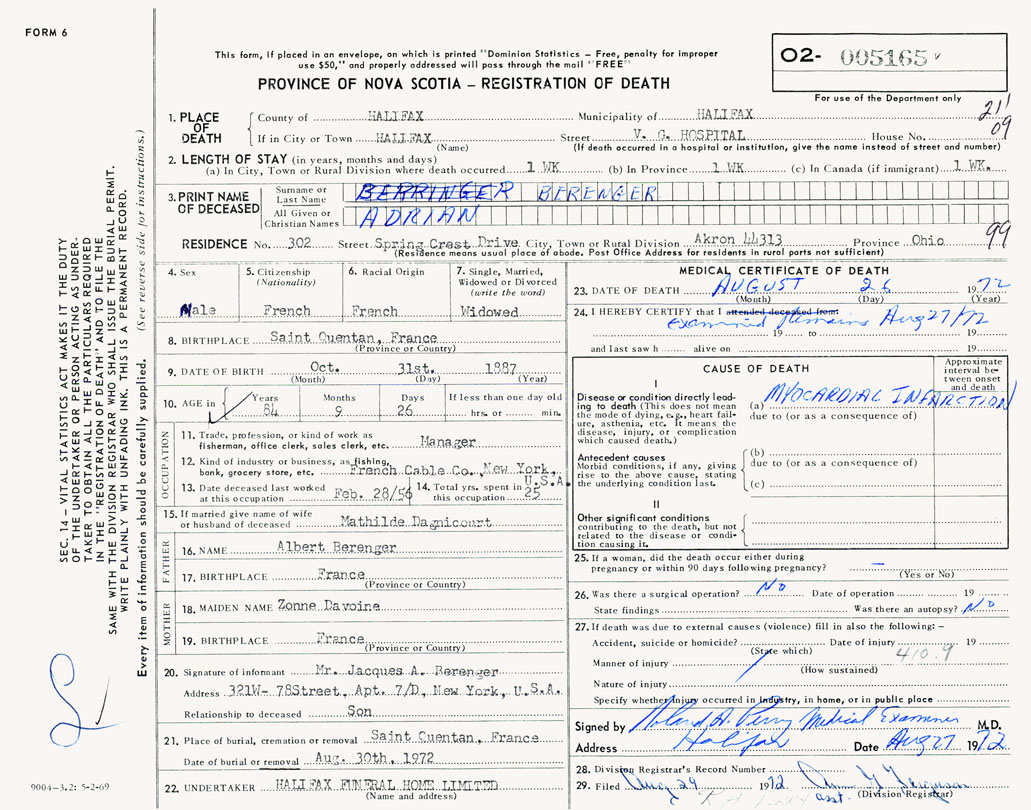 FORM 6
This form, if placed in an envelope, on which is printed "Dominion Statistics – Free, penalty for improper
use $50," and properly addressed will pass through the mail "FREE"
PROVINCE OF NOVA SCOTIA – REGISTRATION OF DEATH
02- 005165
For use of the Department only
211
09
1. PLACE OF DEATH
County of HALIFAX Municipality of HALIFAX
If in City or Town HALIFAX Street V. G. HOSPITAL House No.
(Name) (If death occurred in a hospital or institution, give the name instead of street and number)
2. LENGTH OF STAY (in years, months and days)
(a) In City, Town or Rural Division where death occurred 1 WK (b) In Province 1 WK (c) In Canada (if immigrant) 1 WK.
3. PRINT NAME OF DECEASED
Surname or Last Name BERRINGER BERENGER
All Given or Christian Names ADRIAN
99
RESIDENCE No. 302 Street Spring Crest Drive City, Town or Rural Division Akron 44313 Province Ohio
(Residence means usual place of abode. Post Office Address for residents in rural parts not sufficient)
4. Sex
Male
5. Citizenship
(Nationality)
French
6. Racial Origin
French
7. Single, Married,
Widowed or Divorced
(write the word)
Widowed
8. BIRTHPLACE Saint Quentan, France
(Province or Country)
9. DATE OF BIRTH Oct. 31st. 1887
(Month) (Day) (Year)
10. AGE in
Years Months Days If less than one day old
84 9 26 hrs. or min.
OCCUPATION
11. Trade, profession, or kind of work as
fisherman, office clerk, sales clerk, etc. Manager
12. Kind of industry or business, as fishing,
bank, grocery store, etc. French Cable Co., New York,
U.S.A.
13. Date deceased last worked
at this occupation Feb. 28/56
14. Total yrs. spent in
this occupation 25
15. If married give name of wife
or husband of deceased Mathilde Dagnicourt
FATHER
16. NAME Albert Berenger
17. BIRTHPLACE France
(Province or Country)
MOTHER
18. MAIDEN NAME Zonne Davoine
19. BIRTHPLACE France
(Province or Country)
20. Signature of informant Mr. Jacques A. Berenger
Address 321W- 78Street, Apt. 7/D, New York, U.S.A.
Relationship to deceased Son
21. Place of burial, cremation or removal Saint Quentan, France
Date of burial or removal Aug. 30th, 1972
22. UNDERTAKER HALIFAX FUNERAL HOME LIMITED
(Name and address)
MEDICAL CERTIFICATE OF DEATH
23. DATE OF DEATH AUGUST 26 1972
(Month) (Day) (Year)
24. I HEREBY CERTIFY that I attended deceased from:
examined remains Aug 27/72
19 to 19
and last saw h alive on 19
CAUSE OF DEATH
Approximate interval between onset and death
I
Disease or condition directly leading to death (This does not mean the mode of dying, e.g., heart failure, asthenia, etc. It means the disease, injury, or complication which caused death.)
(a) MYOCARDIAL INFARCTION
due to (or as a consequence of)
Antecedent causes
Morbid conditions, if any, giving rise to the above cause, stating the underlying condition last.
(b)
due to (or as a consequence of)
(c)
II
Other significant conditions
contributing to the death, but not related to the disease or condition causing it.
25. If a woman, did the death occur either during
pregnancy or within 90 days following pregnancy? —
(Yes or No)
26. Was there a surgical operation? No Date of operation 19
State findings Was there an autopsy? No
27. If death was due to external causes (violence) fill in also the following: –
Accident, suicide or homicide? Date of injury 19
(State which) 410.9
Manner of injury
(How sustained)
Nature of injury
Specify whether injury occurred in industry, in home, or in public place
Signed by Roland A. Perry Medical Examiner M.D.
Address Halifax Date Aug 27 1972
28. Division Registrar's Record Number
29. Filed Aug 29 1972
asst. (Division Registrar)
SEC. 14 – VITAL STATISTICS ACT MAKES IT THE DUTY
OF THE UNDERTAKER OR PERSON ACTING AS UNDER-
TAKER TO OBTAIN ALL THE PARTICULARS REQUIRED
IN THE "REGISTRATION OF DEATH" AND TO FILE THE
SAME WITH THE DIVISION REGISTRAR WHO SHALL ISSUE THE BURIAL PERMIT.
WRITE PLAINLY WITH UNFADING INK. THIS IS A PERMANENT RECORD.
Every item of information should be carefully supplied. (See reverse side for instructions.)
9004-3.2: 5-2-69